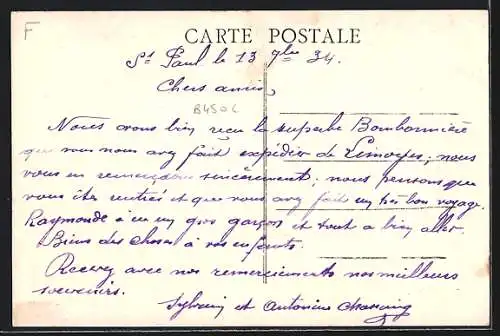 F
CARTE POSTALE
St Paul le 13 9bre 34.
Chers amis,
B450C
Nous avons bien reçu la superbe Bombonnière
que vous nous avez fait expédier de Limoges; nous
vous en remercions sincèrement; nous pensons que
vous êtes rentrés et que vous avez fait un très bon voyage.
Raymonde a eu un gros garçon et tout a bien aller.
Biens des choses à vos enfants.
Recevez avec nos remerciements nos meilleurs
souvenirs.
Sylvain et Antonine